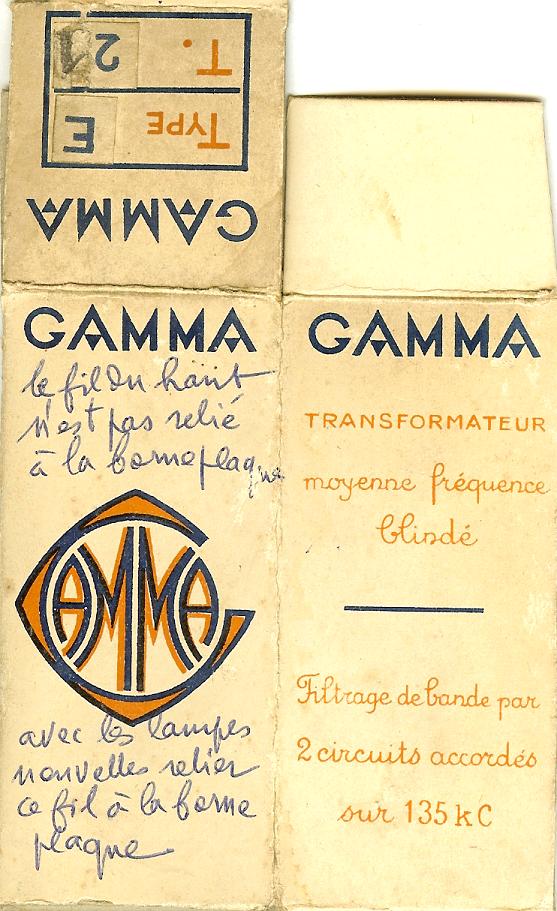 GAMMA
TYPE E
T. 21
GAMMA
le fil du haut
n'est pas relié
à la borne plaque
GAMMA
avec les lampes
nouvelles relier
ce fil à la borne
plaque
GAMMA
TRANSFORMATEUR
moyenne fréquence
blindé
Filtrage de bande par
2 circuits accordés
sur 135 kC